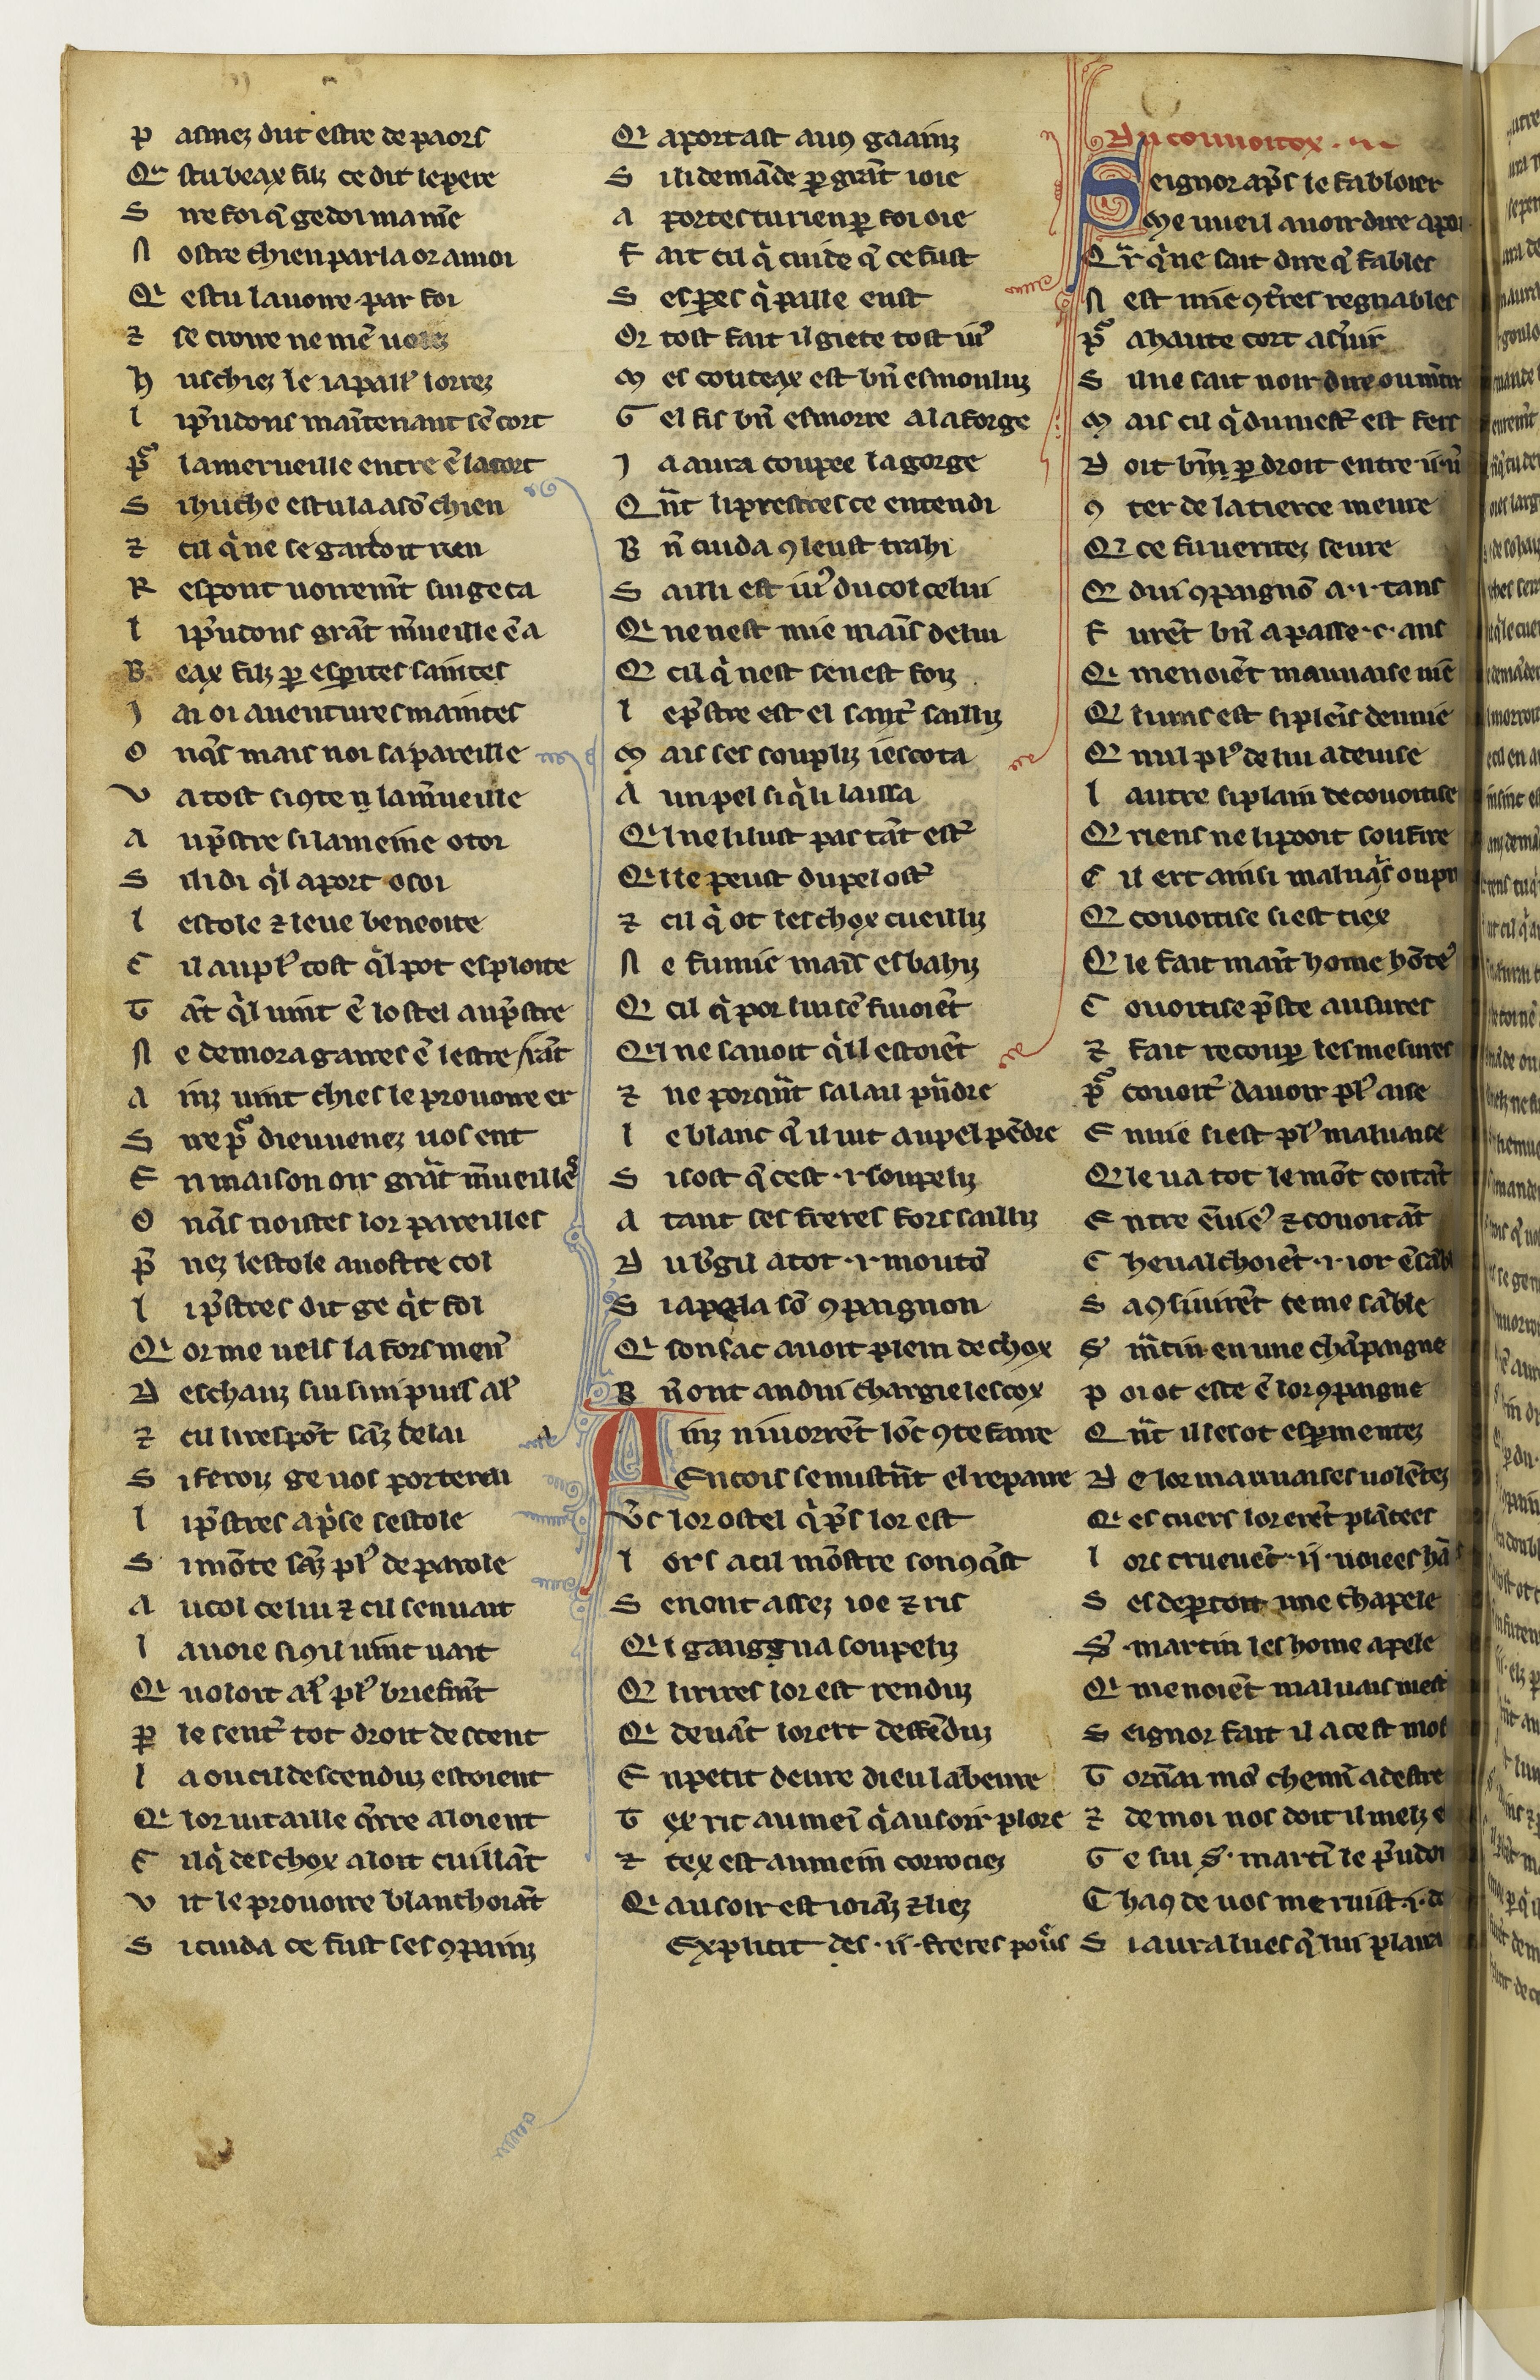 P asmez dut estre de paors
Q̃ stu beax filz ce dit le pere
S ire foi q̃ ge doi ma mẽe
N ostre chien parla or a moi
Q estu la uoire par foi
⁊ se croire ne mẽ
H uschiez le ia parl̾ lorrez
L i p̃udons mañtenant sẽ cort
P̾ la merueille entre ẽ la cort
S i huche estula a sõ chien
⁊ cil q̾ ne se gardoit rien
R espont uoiremt̃ sui ge ca
L i p̃udons grãt m̃ueille ẽ a
B eax filz ꝑ esꝑites saintes
J ai oi auentures maintes
O nq̃s mais noi sa pareille
V a tost si ꝯte ũ la m̃ueille
A u p̃stre si lameine o toi
S i li di q̾l aport o soi
L estole ⁊ leue beneoite
C il au pl̾ tost q̾l pot esploite
T ãt q̾l uint ẽ lostel au p̃stre
N e demora gaires ẽ lestre
A inz uint chies le prouoire er
S ire p̾ dieu uenez uos ent
E n maison oir grãt m̃ueille
O nq̃s noistes lor pareilles
P̃ nez lestole a uostre col
L i p̃stres dit ge q̾t fol
Q or me uels la fors men̾
D eschauz sui si ni puis al̾
⁊ cil li respõt sãz delai
S i feroiz ge uos porterai
L i p̃stres ap̃se sestole
S i mõte sãz pl̾ de parole
A u col celui ⁊ cil senuait
L a uoie si ꝯ il uint uait
Q uoloit al̾ pl̾ briefmt̃
P̱ le sent̾ tot droit descent
L a ou cil descenduz estoient
Q lor uitaille q̃rre aloient
C il q̾ des chox aloit cuillãt
V it le prouoire blanchoiãt
S i cuida ce fust ses ꝯpainz
Q aportast auꝯ gaainz
S i li demãde ꝑ grãt ioie
A portes tu rien ꝑ foi oie
F ait cil q̾ cuide q̃ ce fust
S es peres q̾ paille eust
Or tost fait il giete tost iu̾
M es couteax est bñ esmoulus
G el fis bñ esmorre a la forge
J a aura coupee la gorge
Q ñt li prestres ce entendi
B ñ cuida ꝯ leust trahi
S ailli est iu̾ du col celui
Q ne nest mie mains de lui
Q cil q̾ nest senest foiz
L e p̃stre est el sant̃ sailliz
M ais ses soupliz iescota
A un pel si q̾ li laissa
Q l ne li lut pas tãt est̾
Q lle peust du pel ost̾
⁊ cil q̾ ot les chox cueilliz
N e fu mie mains esbahiz
Q cil q̾ por lui sẽ fuioiẽt
Q l ne sauoit q̾ il estoiẽt
⁊ ne porq̃nt sa lau p̃ndre
L e blanc q̃ il uit au pel pẽdre
S i sost q̃ cest ·i· soupeliz
A tant ses freres fors sailliz
D u b̾gil atot ·i· moutõ
S i apela sõ ꝯpaignon
Q son sac auoit plein de chox
B ñ ont andui chargie les cox
A inz ni uorrẽt lõc ꝯte faire
Encois se mustrñt el repaire
V̾s lor ostel q̾ p̃s lor est
L ors a cil mõstre son ꝯq̃st
S en ont assez ioe ⁊ ris
Q l gaaigna soupeliz
Q li rires lor est renduz
Q deuãt lor ert deffẽduz
E n petit deure dieu labeure
T ex rit au mei q̾ au soir plore
⁊ tex est au mein corrociez
Q au soir est ioiãz ⁊ liez
Explicit des ·ii· freres pou̾s
Du couuoitox
Seignor ap̃s le fabloier
Me uueil a uoir dire
Q̃r q̾ ne sait dire q̃ fables
N est mie ꝯt̾res regnables
P̾ a haute cort as̾uir
S il ne sait uoir dire ou
M ais cil q̾ du mest̾ est fers
D oit bm̃ ꝑ droit entre
ꝯ ter de la tierce meure
Q ce fu ueritez seure
Q dui ꝯpaignõ a ·i· tans
F urẽt bñ a passe ·c· ans
Q menoiẽt mauuaise uiẽ
Q luns est si pleĩs denuie
Q nul pl̾ de lui a deuise
L autre si plain de couoitise
Q riens ne li pooit soufire
C il ert ainsi maluais ou
Q couoitise si est tiex
Q le fait maīt home hõte̾
C ouoitise p̃ste a usures
⁊ fait recouꝑ les mesures
P̾ couoit̾ dauoir pl̾ aise
E nuie si est pl̾ maluaise
Q le ua tot le mõt coitãt
E ntre ẽuie̾ ⁊ couoitãt
C heualchoiẽt ·i· ior
S aꝯsiuirẽt ce me sãble
S̾ m̃tin en une chãpaigne
P oi ot este ẽ lor ꝯpaigne
Q ñt il les ot esꝑmentez
D e lor mauuaises uolẽtez
Q es cuers lor erẽt plãtees
L ors truuẽt ·ii· uoiees
S es deꝑtoit une chapele
S̾ ·martin les home apele
Q menoiẽt maluais mest
S eignor fait il a cest mos
T orñai mõ chemĩ a destre
⁊ de moi uos doit il melz
G e sui S̾ martĩ le p̃udom
C haꝯ de uos me ruist ·i·
S i aura lues q̃ lui plaira